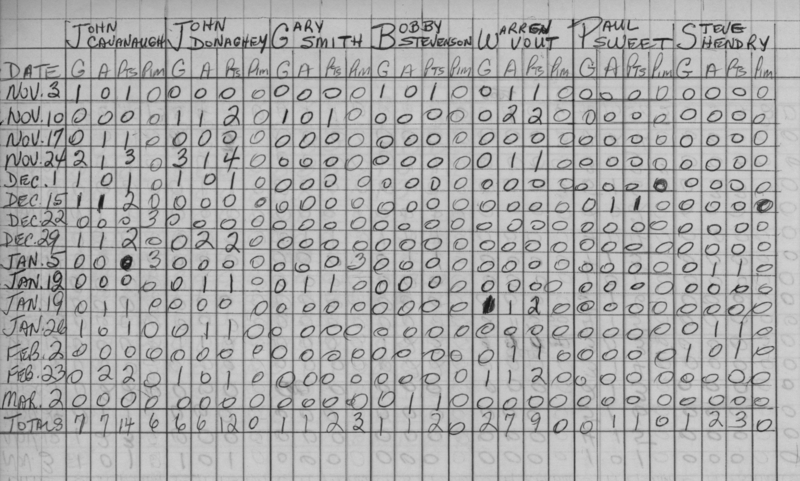 JOHN CAVANAUGH JOHN DONAGHEY GARY SMITH BOBBY STEVENSON WARREN VOUT PAUL SWEET STEVE HENDRY
DATE G A PTS PIM G A PTS PIM G A PTS PIM G A PTS PIM G A PTS PIM G A PTS PIM G A PTS PIM
NOV.3 1 0 1 0 0 0 0 0 0 0 0 0 1 0 1 0 0 1 1 0 0 0 0 0 0 0 0 0
NOV.10 0 0 0 0 1 1 2 0 1 0 1 0 0 0 0 0 0 2 2 0 0 0 0 0 0 0 0 0
NOV.17 0 1 1 0 0 0 0 0 0 0 0 0 0 0 0 0 0 0 0 0 0 0 0 0 0 0 0 0
NOV.24 2 1 3 0 3 1 4 0 0 0 0 0 0 0 0 0 0 1 1 0 0 0 0 0 0 0 0 0
DEC.1 1 0 1 0 1 0 1 0 0 0 0 0 0 0 0 0 0 0 0 0 0 0 0 0 0 0 0 0
DEC.15 1 1 2 0 0 0 0 0 0 0 0 0 0 0 0 0 0 0 0 0 0 1 1 0 0 0 0 0
DEC.22 0 0 0 3 0 0 0 0 0 0 0 0 0 0 0 0 0 0 0 0 0 0 0 0 0 0 0 0
DEC.29 1 1 2 0 0 2 2 0 0 0 0 0 0 0 0 0 0 0 0 0 0 0 0 0 0 0 0 0
JAN.5 0 0 0 3 0 0 0 0 0 0 0 3 0 0 0 0 0 0 0 0 0 0 0 0 0 1 1 0
JAN.12 0 0 0 0 0 1 1 0 0 1 1 0 0 0 0 0 0 0 0 0 0 0 0 0 0 0 0 0
JAN.19 0 1 1 0 0 0 0 0 0 0 0 0 0 0 0 0 1 1 2 0 0 0 0 0 0 0 0 0
JAN.26 1 0 1 0 0 1 1 0 0 0 0 0 0 0 0 0 0 0 0 0 0 0 0 0 0 1 1 0
FEB.2 0 0 0 0 0 0 0 0 0 0 0 0 0 0 0 0 0 1 1 0 0 0 0 0 1 0 1 0
FEB.23 0 2 2 0 1 0 1 0 0 0 0 0 0 0 0 0 1 1 2 0 0 0 0 0 0 0 0 0
MAR.2 0 0 0 0 0 0 0 0 0 0 0 0 0 1 1 0 0 0 0 0 0 0 0 0 0 0 0 0
TOTALS 7 7 14 6 6 6 12 0 1 1 2 3 1 1 2 0 2 7 9 0 0 1 1 0 1 2 3 0